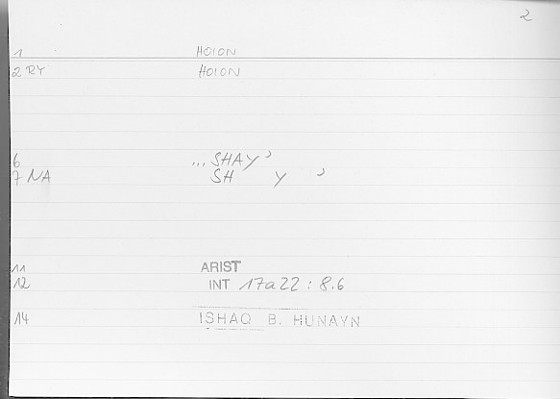 2
1 HOION
2 RY HOION
6 ... SHAY'
7 NA SH Y '
11 ARIST
12 INT 17a22 : 8.6
14 ISHAQ B. HUNAYN